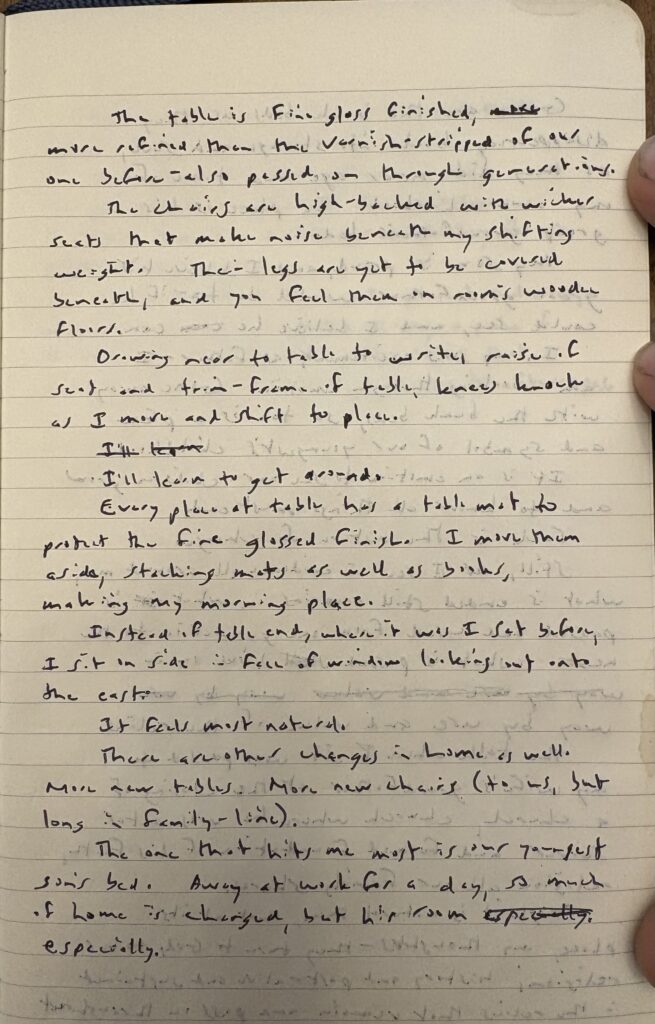 The table is fine gloss finished, more
more refined than the varnish-stripped of our
one before–also passed on through generations.
The chairs are high-backed with wicker
seats that make noise beneath my shifting
weight. Their legs are yet to be covered
beneath, and you feel them on room's wooden
floors.
Drawing near to table to write, raise of
seat and trim-frame of table, knees knock
as I move and shift to place.
I'll learn
I'll learn to get around.
Every place at table has a table mat to
protect the fine glossed finish. I move them
aside, stacking mats as well as books,
making my morning place.
Instead of table end, where it was I sat before,
I sit on side in face of window looking out onto
the east.
It feels most natural.
There are other changes in home as well.
More new tables. More new chairs (to us, but
long in family-line).
The one that hits me most is our youngest
son's bed. Away at work for a day, so much
of home is changed, but his room especially.
especially.